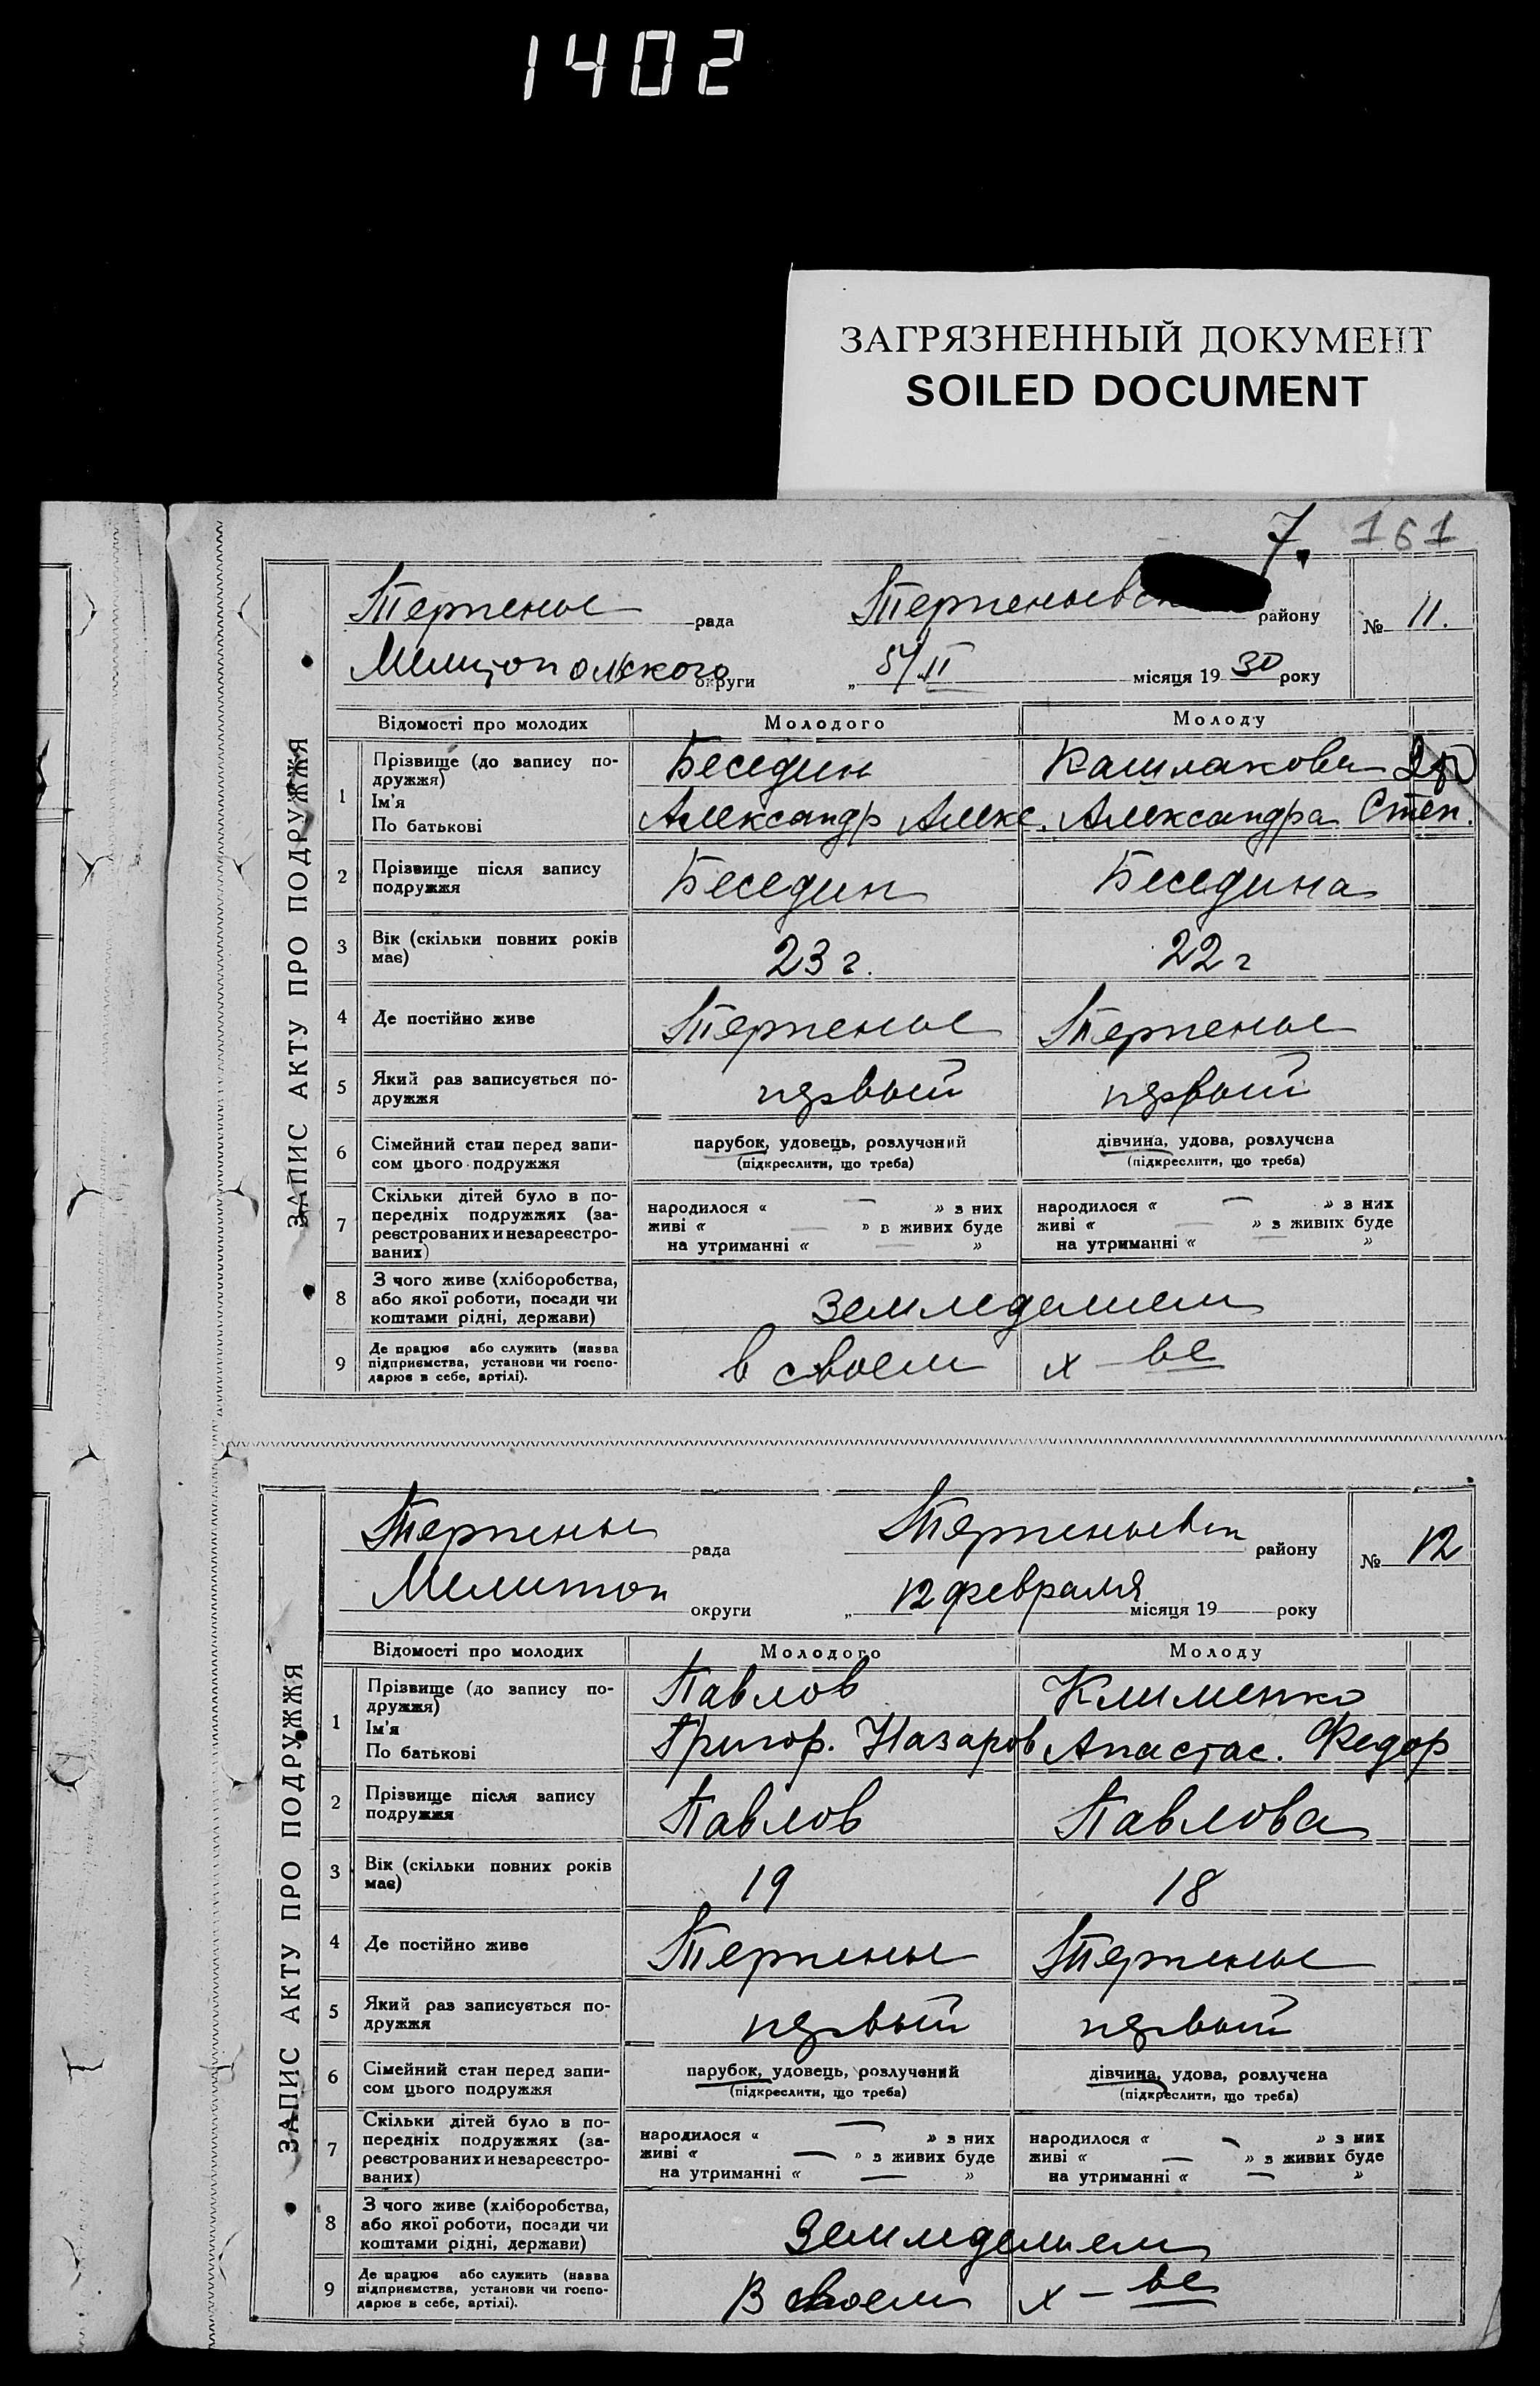 1402
ЗАГРЯЗНЕННЫЙ ДОКУМЕНТ
SOILED DOCUMENT
7. 161
ЗАПИС АКТУ ПРО ПОДРУЖЖЯ
Терпенье рада Терпеньевск району № 11.
Мелитопольского округи „ 5/II місяця 1930 року
Відомості про молодих Молодого Молоду
1 Прізвище (до запису по-
дружжя)
Ім’я
По батькові
Беседин Кашлакова
Александр Алекс. Александра Степ.
2 Прізвище після запису
подружжя
Беседин Беседина
3 Вік (скільки повних років
має)
23 г. 22 г
4 Де постійно живе Терпенье Терпенье
5 Який раз записується по-
дружжя
первый первый
6 Сімейний стан перед запи-
сом цього подружжя
парубок, удовець, розлучений дівчина, удова, розлучена
(підкреслити, що треба) (підкреслити, що треба)
7 Скільки дітей було в по-
передніх подружжях (за-
реєстрованих и незареєстро-
ваних)
народилося « — » з них народилося « — » з них
живі « — » в живих буде живі « — » з живих буде
на утриманні « — » на утриманні « — »
8 З чого живе (хліборобства,
або якої роботи, посади чи
коштами рідні, держави)
земледелием
9 Де працює або служить (назва
підприємства, установи чи госпо-
дарює в себе, артілі).
в своем х-ве
ЗАПИС АКТУ ПРО ПОДРУЖЖЯ
Терпенье рада Терпеньевск району № 12
Мелитоп округи „ 12 февраля місяця 19 року
Відомості про молодих Молодого Молоду
1 Прізвище (до запису по-
дружжя)
Ім’я
По батькові
Павлов Клименко
Григор. Назаров Анастас. Федор
2 Прізвище після запису
подружжя
Павлов Павлова
3 Вік (скільки повних років
має)
19 18
4 Де постійно живе Терпенье Терпенье
5 Який раз записується по-
дружжя
первый первый
6 Сімейний стан перед запи-
сом цього подружжя
парубок, удовець, розлучений дівчина, удова, розлучена
(підкреслити, що треба) (підкреслити, що треба)
7 Скільки дітей було в по-
передніх подружжях (за-
реєстрованих и незареєстро-
ваних)
народилося « — » з них народилося « — » з них
живі « — » з живих буде живі « — » з живих буде
на утриманні « — » на утриманні « — »
8 З чого живе (хліборобства,
або якої роботи, посади чи
коштами рідні, держави)
Земледелием
9 Де працює або служить (назва
підприємства, установи чи госпо-
дарює в себе, артілі).
В своем х-ве